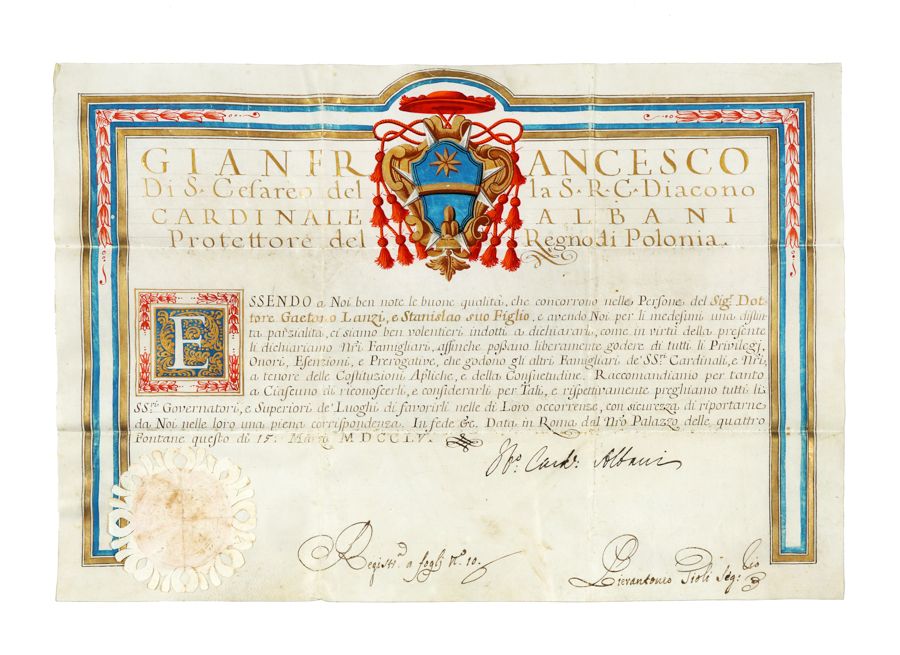 GIANFRANCESCO
Di S. Cesareo della S. R. C. Diacono
CARDINALE ALBANI
Protettore del Regno di Polonia.
ESSENDO a Noi ben note le buone qualità, che concorrono nelle Persone del Sig.r Dot-
tore Gaetano Lanzi, e Stanislao suo Figlio, e avendo Noi per li medesimi una distin-
ta parzialità, ci siamo ben volentieri indotti a dichiararli, come in virtù della presente
li dichiariamo Nri Famigliari, affinche possano liberamente godere di tutti li Privilegj,
Onori, Esenzioni, e Prerogative, che godono gli altri Famigliari de' SSri Cardinali, e Nri,
a tenore delle Costituzioni Apliche, e della Consuetudine. Raccomandiamo per tanto
a Ciascuno di riconoscerli, e considerarli per Tali, e rispettivamente preghiamo tutti li
SSri Governatori, e Superiori de' Luoghi di favorirli nelle di Loro occorrenze, con sicurezza di riportarne
da Noi nelle loro una piena corrispondenza. In fede &c. Data in Roma dal Nro Palazzo delle quattro
Fontane questo di 15. Marzo MDCCLV.
Card. Albani
Regist.a a foglj N.o 10.
Pierantonio Tioli Seg.rio